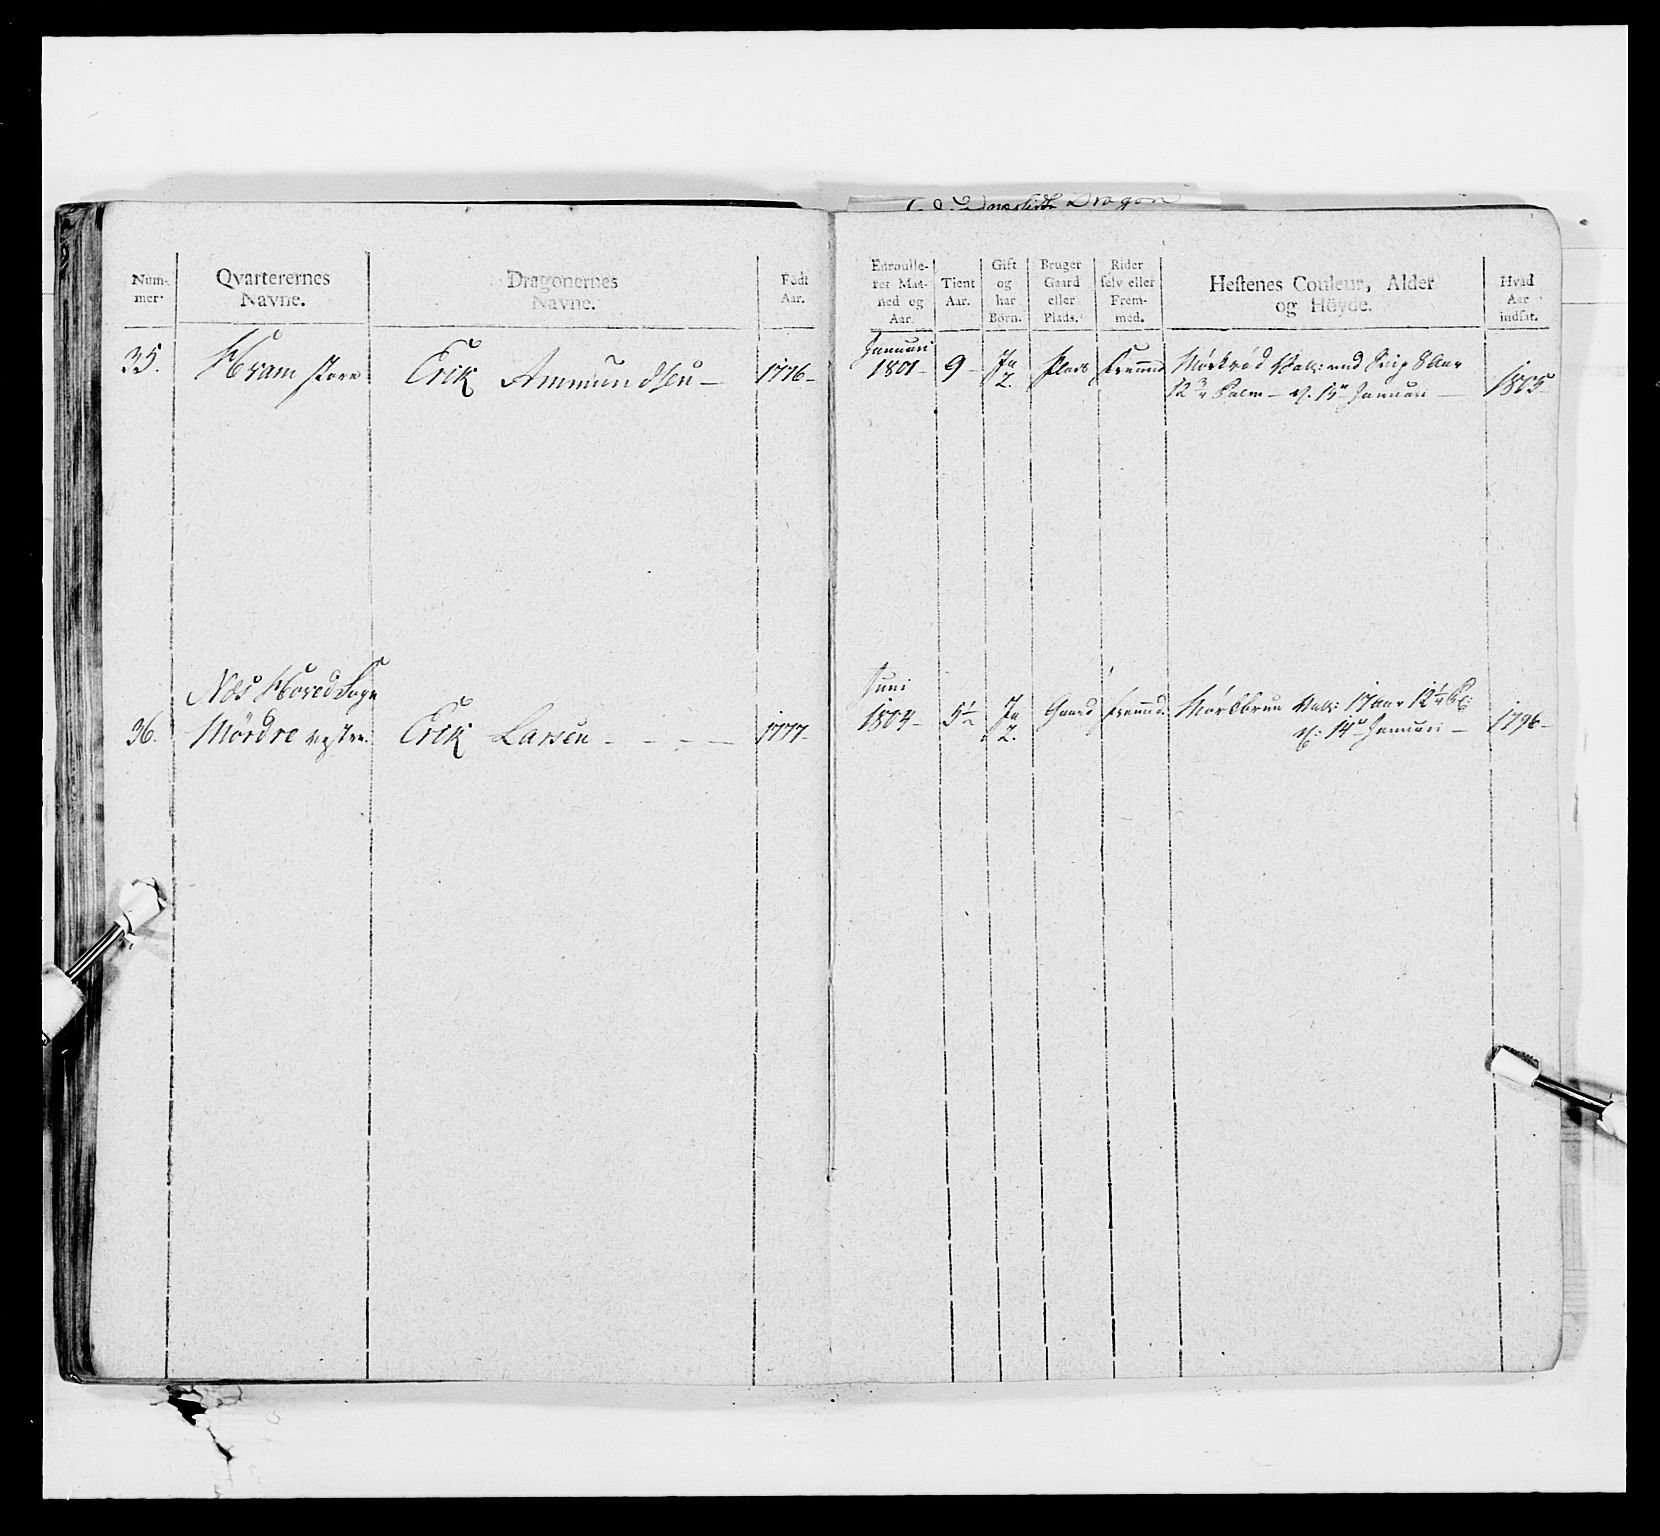 Dragon
Num-
mer.
Qvarterernes
Navne.
Dragonernes
Navne.
Födt
Aar.
Enroulle-
ret Maa-
ned og
Aar.
Tient
Aar.
Gift
og
har
Börn.
Bruger
Gaard
eller
Plads.
Rider
selv eller
Frem-
med.
Hestenes Couleur, Alder
og Höyde.
Hvad
Aar
indsat.
35.
Hvam store
Erik Ammundsen
1776
Januari
1801
9
Ja
2.
Plads
Fremmed
Mörkröd Val: med 8 Aar
12 3/4 Palm - d. 15n Januari
1805
Næs Hoved Sogn
36.
Mördre vestre.
Erik Larsen
1777
Juni
1804
5½
Ja
2.
Gaard
Fremmed
Mörkbrun Val: 17 aar 12½ Pl:
d: 14n Januari
1796